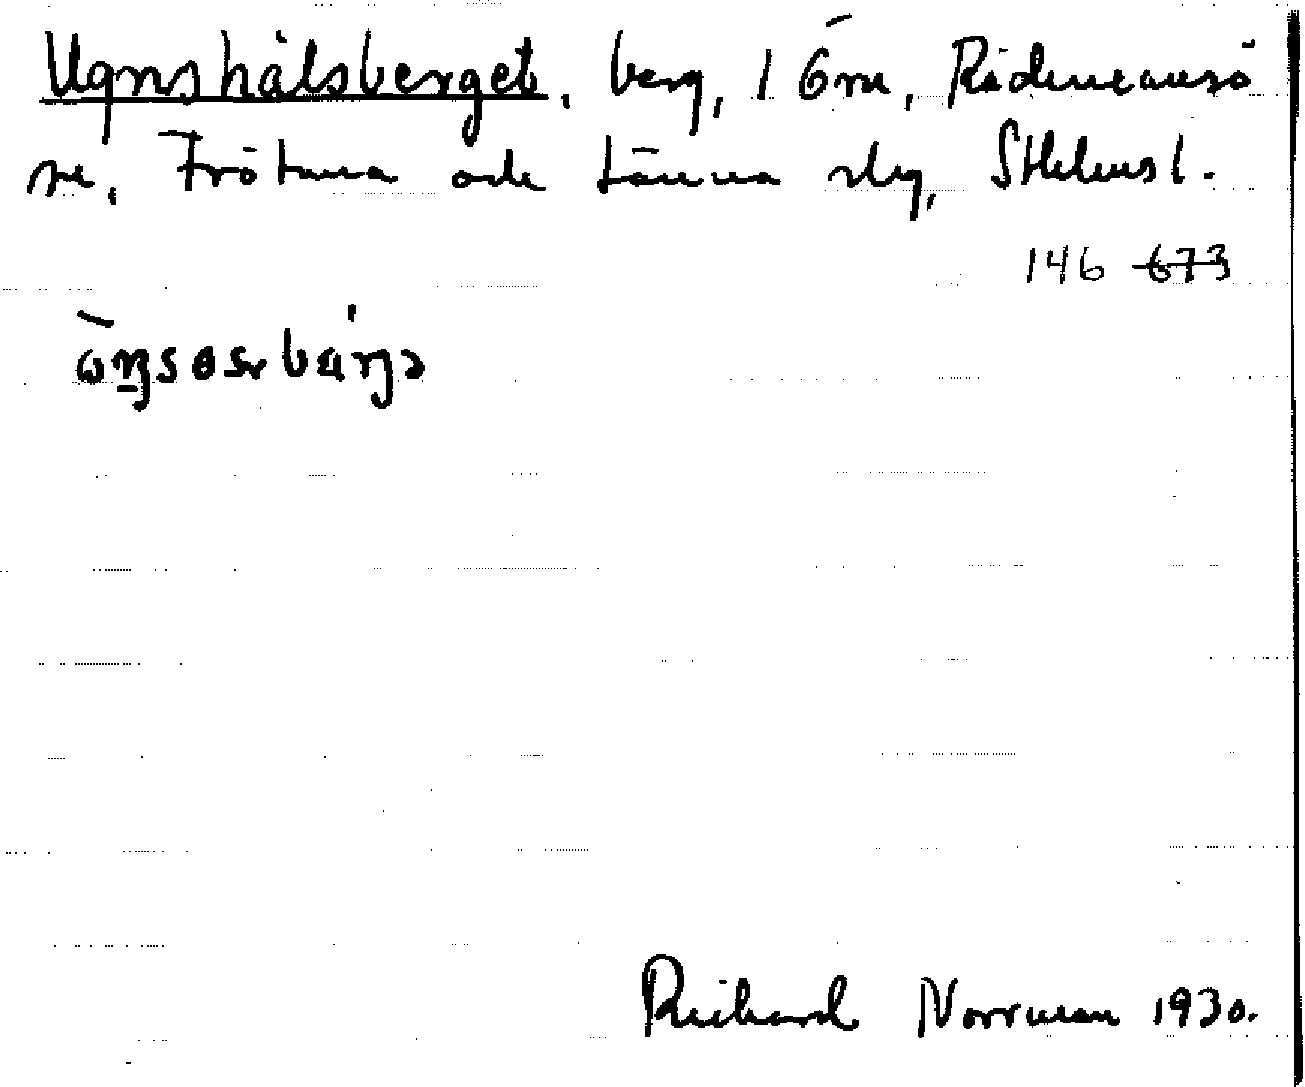 Ugnshålsberget, berg, 1 ōm, Rådmansö
sn, Frötuna och Länna slg, Sthlms l.
146 673
Richard Norrman 1930.